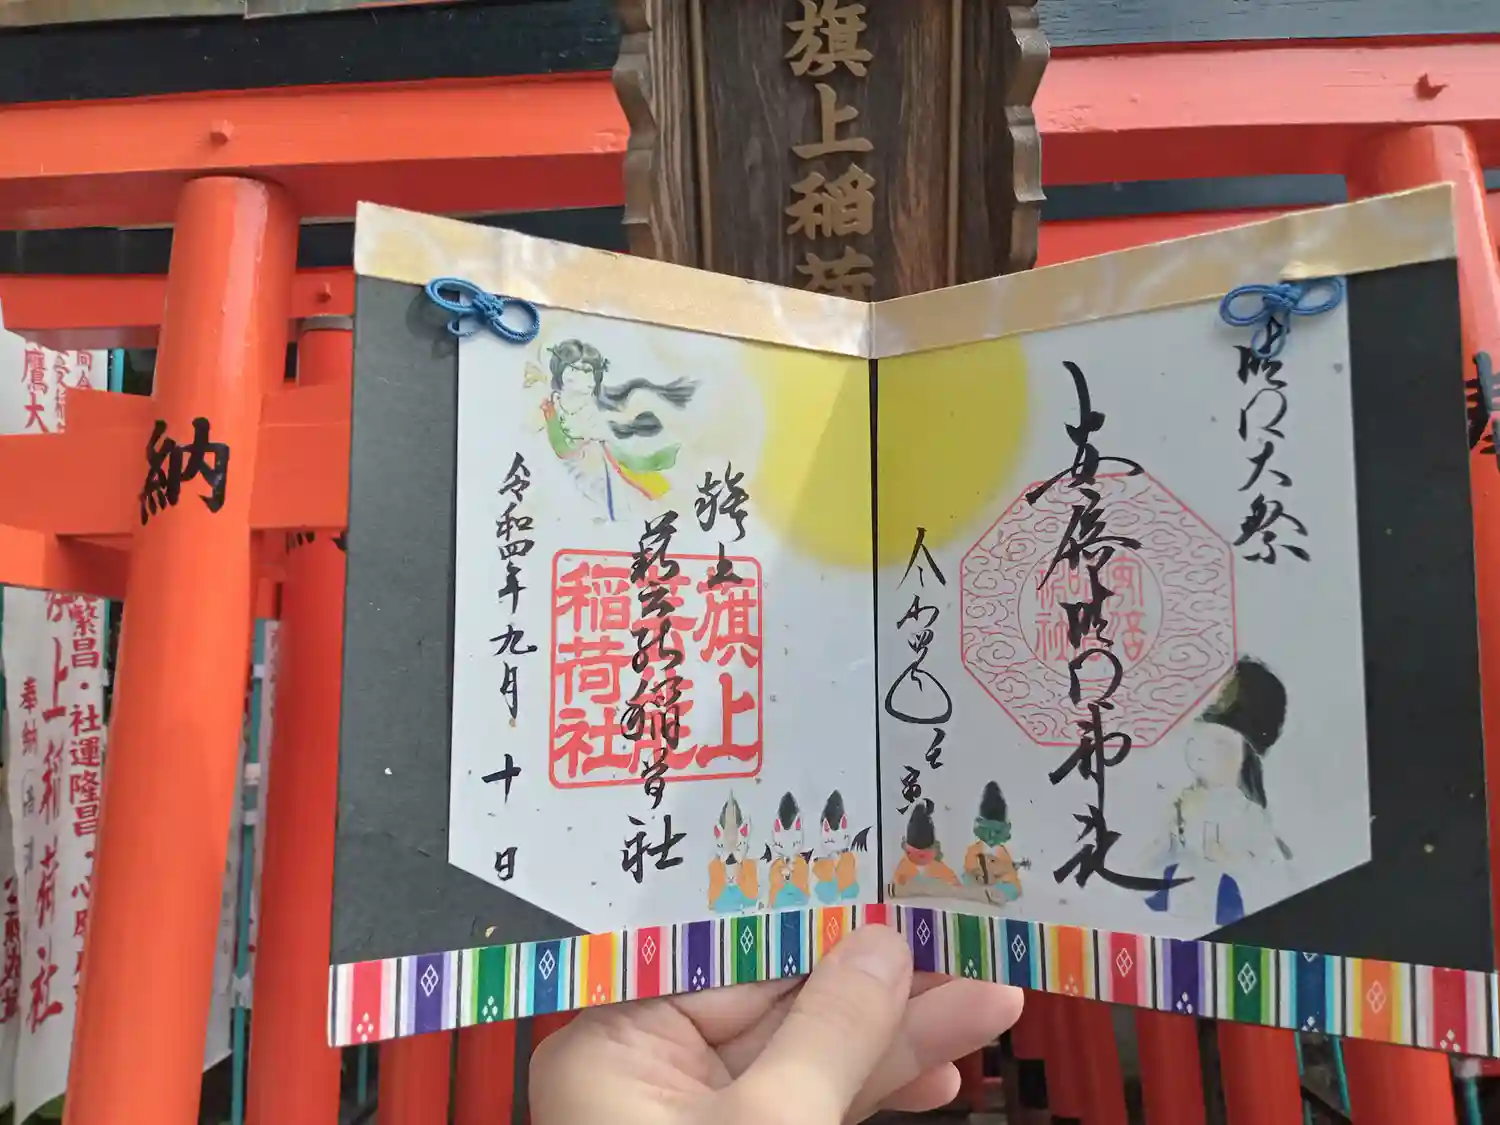 旗上稲荷
納
晴明大祭
安倍晴明神社
令和四年
壬寅
旗上
芸能稲荷社
旗上
芸能
稲荷社
令和四年九月十日
鷹大
繁昌・社運隆昌・心願
旗上稲荷社
奉納